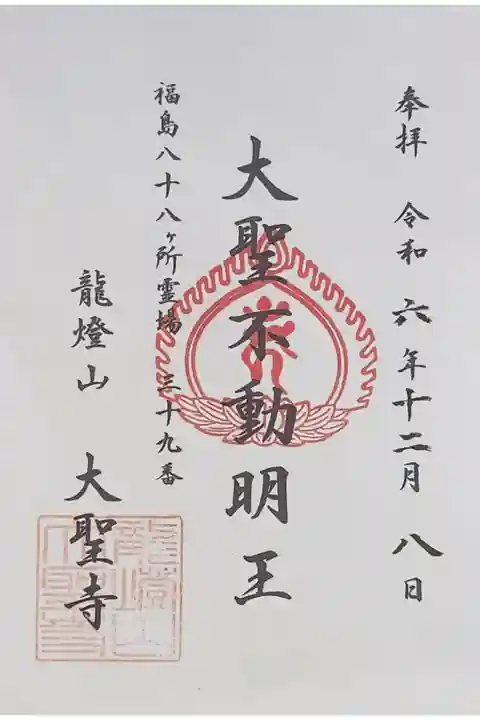 奉拝 令和六年十二月八日
大聖不動明王
福島八十八ヶ所霊場 三十九番
龍燈山 大聖寺